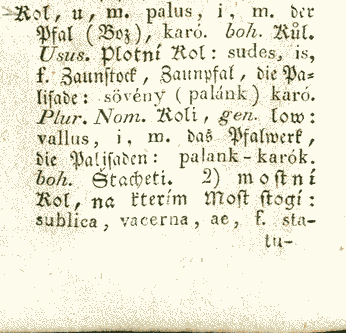 Kol, u, m. palus, i, m. der
Pfal (Boz), karó. boh. Kůl.
Usus. Plotní Kol: sudes, is,
f. Zaunstock, Zaunpfal, die Pa-
lisade: sövény (palánk) karó.
Plur. Nom. Koli, gen. low:
vallus, i, m. das Pfalwerk,
die Palisaden: palank-karók.
boh. Stacheti. 2) mostní
Kol, na kterím Most stogí:
sublica, vacerna, ae, f. sta-
tu-